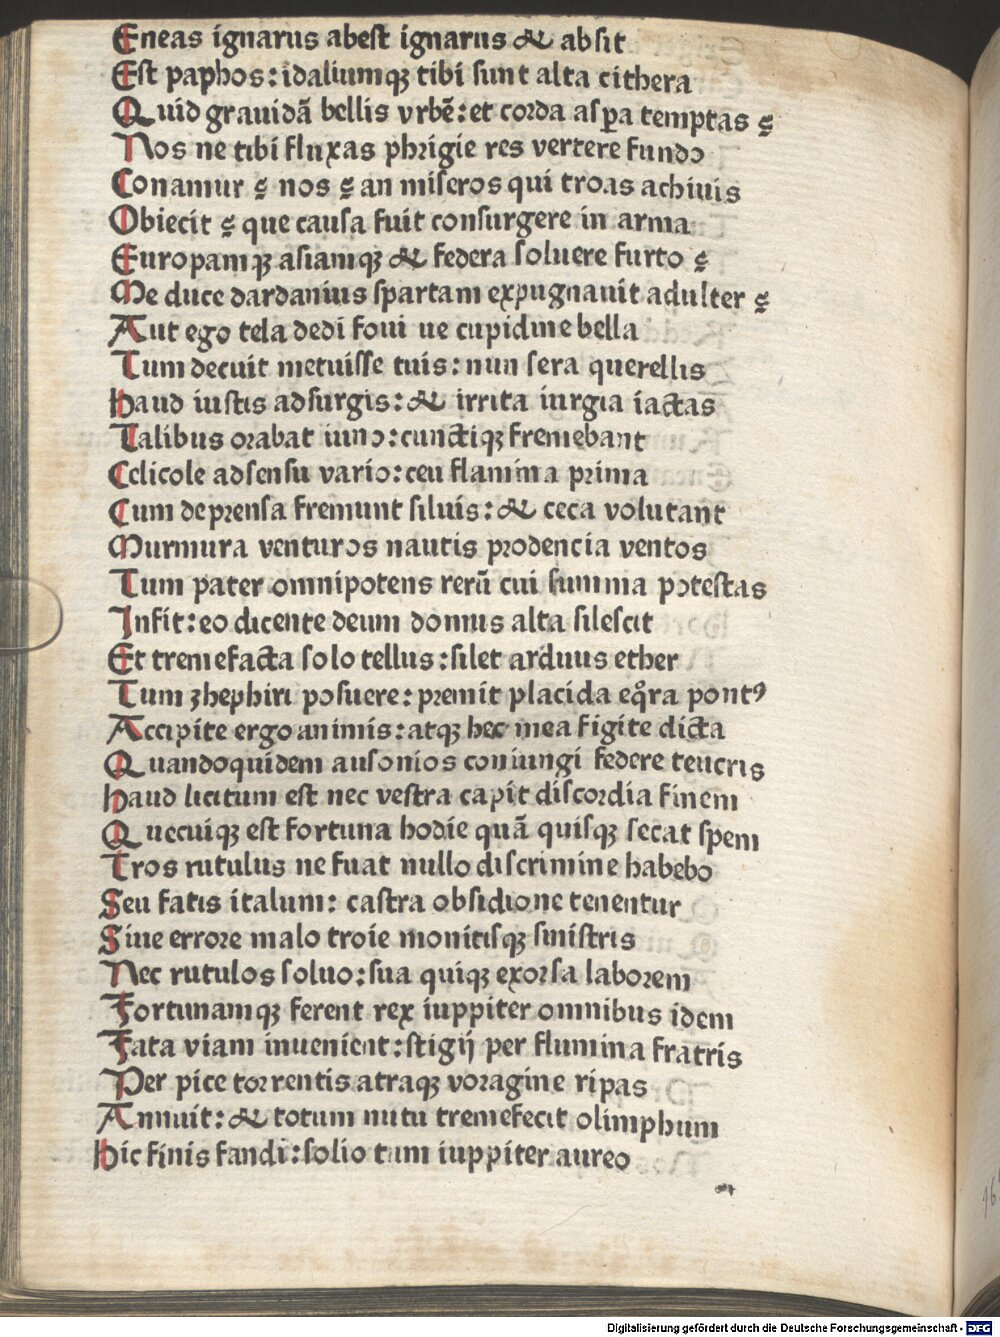 Eneas ignarus abest ignarus & absit
Est paphos: idaliumqꝫ tibi sunt alta cithera
Quid grauidā bellis vrbē: et corda asꝑa temptas ꝯ
Nos ne tibi fluxas phrigie res vertere fundo
Conamur ꝯ nos ꝯ an miseros qui troas achiuis
Obiecit ꝯ que causa fuit consurgere in arma
Europamqꝫ asiamqꝫ & federa soluere furto ꝯ
Me duce dardanius spartam expugnauit adulter ꝯ
Aut ego tela dedi foui ue cupidine bella
Tum decuit metuisse tuis: nun sera querellis
haud iustis adsurgis: & irrita iurgia iactas
Talibus orabat iuno: cunctiqꝫ fremebant
Celicole adsensu vario: ceu flamina prima
Cum deprensa fremunt siluis: & ceca volutant
Murmura venturos nautis prodencia ventos
Tum pater omnipotens rerū cui summa potestas
Infit: eo dicente deum domus alta silescit
Et tremefacta solo tellus: silet arduus ether
Tum zhephiri posuere: premit placida eqͦra pontꝰ
Accipite ergo animis: atqꝫ hec mea figite dicta
Quandoquidem ausonios coniungi federe teucris
haud licitum est nec vestra capit discordia finem
Quecuiqꝫ est fortuna hodie quā quisqꝫ secat spem
Tros rutulus ne fuat nullo discrimine habebo
Seu fatis italum: castra obsidione tenentur
Siue errore malo troie monitisqꝫ sinistris
Nec rutulos soluo: sua quiqꝫ exorsa laborem
Fortunamqꝫ ferent rex iuppiter omnibus idem
Fata viam inuenient: stigij per flumina fratris
Per pice torrentis atraqꝫ voragine ripas
Annuit: & totum nutu tremefecit olimphum
hic finis fandi: solio tum iuppiter aureo
Digitalisierung gefördert durch die Deutsche Forschungsgemeinschaft - DFG